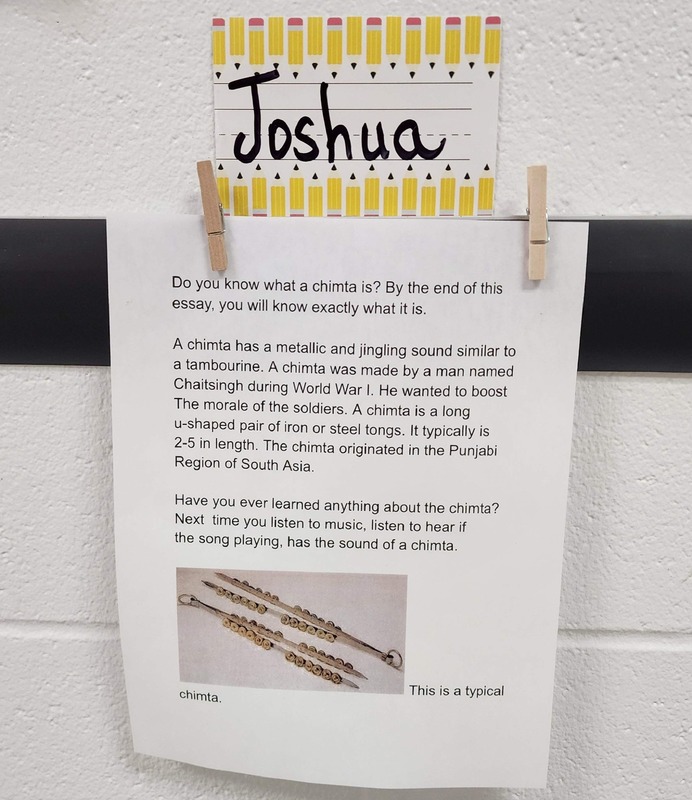 Joshua
Do you know what a chimta is? By the end of this
essay, you will know exactly what it is.
A chimta has a metallic and jingling sound similar to
a tambourine. A chimta was made by a man named
Chaitsingh during World War I. He wanted to boost
The morale of the soldiers. A chimta is a long
u-shaped pair of iron or steel tongs. It typically is
2-5 in length. The chimta originated in the Punjabi
Region of South Asia.
Have you ever learned anything about the chimta?
Next time you listen to music, listen to hear if
the song playing, has the sound of a chimta.
This is a typical
chimta.